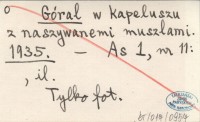 o Góral w kapeluszu
z naszywanemi muszlami.
1935. — As 1, nr 11:
, il.
Tylko fot.